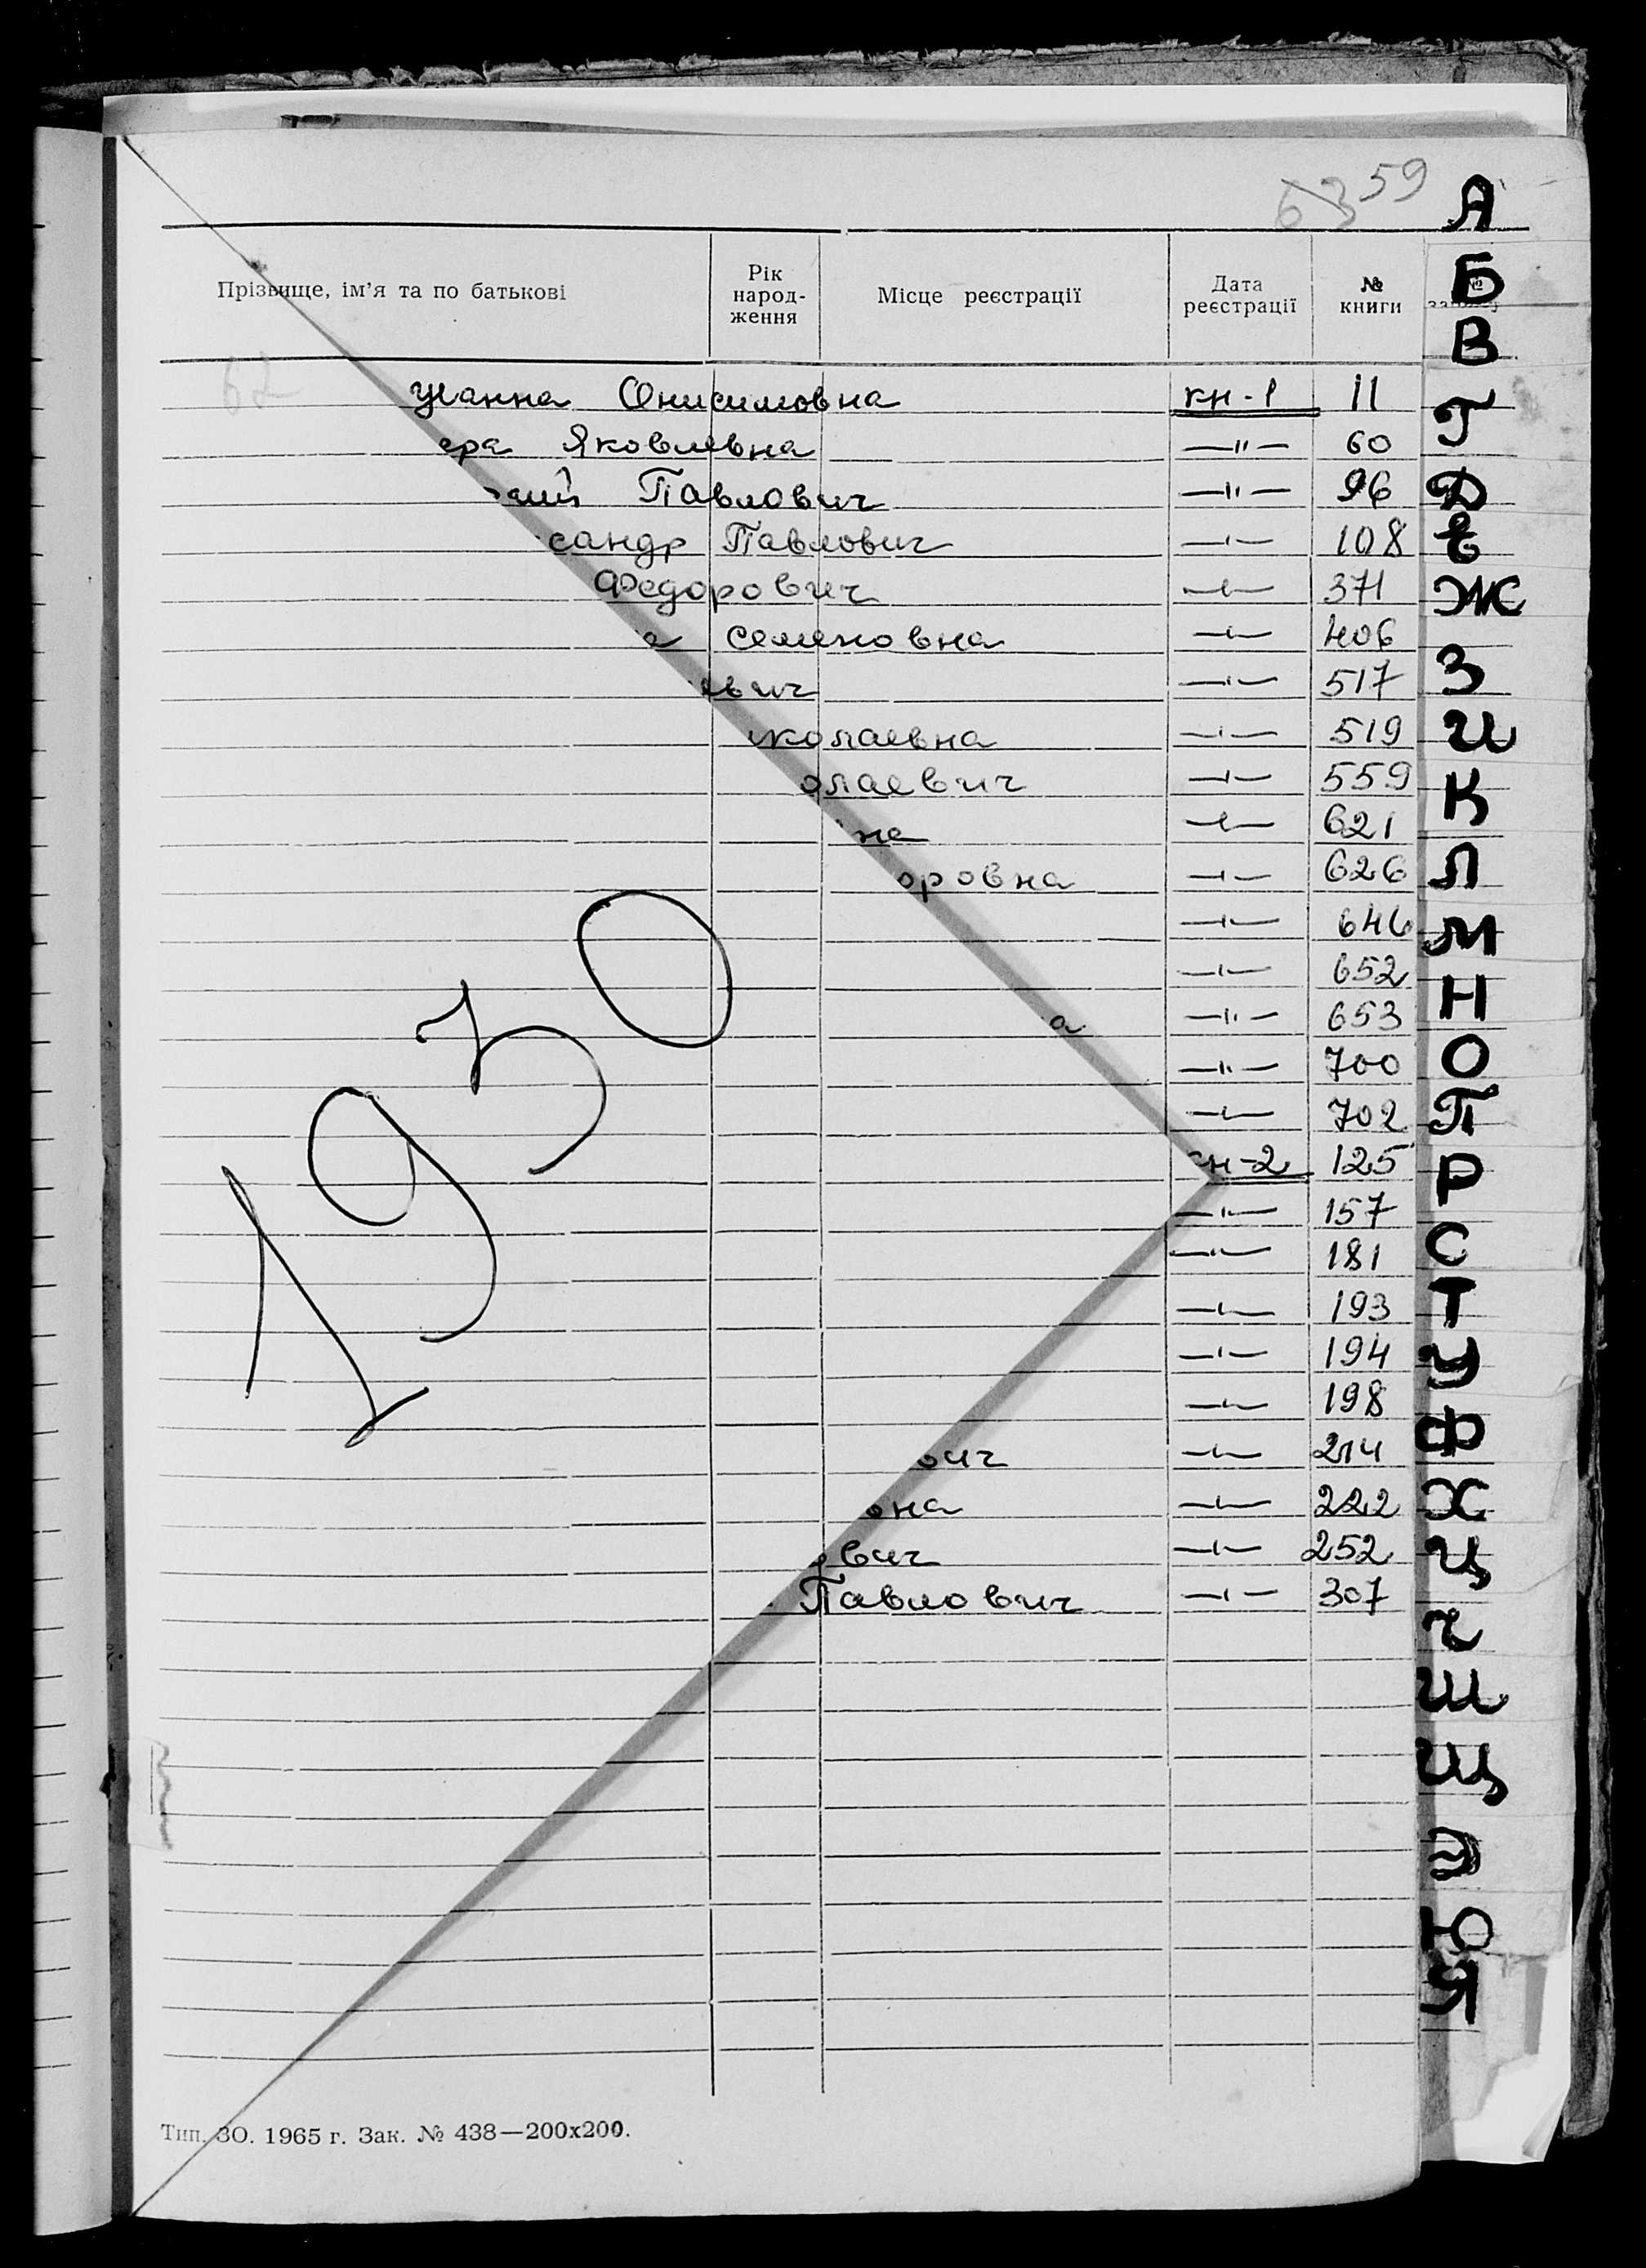 59
63
Прізвище, ім'я та по батькові Рік народ-ження Місце реєстрації Дата реєстрації № книги №
62
Жанна Онисимовна кн-1 11
ера Яковлевна —"— 60
Павлович —"— 96
сандр Павлович —"— 108
Федорович —"— 371
а Семеновна —"— 406
вич —"— 517
иколаевна —"— 519
олаевич —"— 559
на —"— 621
оровна —"— 626
—"— 646
—"— 652
а —"— 653
—"— 700
—"— 702
кн-2 125
—"— 157
—"— 181
—"— 193
—"— 194
—"— 198
вич —"— 214
вна —"— 222
вич —"— 252
Павлович —"— 307
1930
Тип. ЗО. 1965 г. Зак. № 438—200х200.
А
Б
В
Г
Д
Е
Ж
З
И
К
Л
М
Н
О
П
Р
С
Т
У
Ф
Х
Ц
Ч
Ш
Щ
Э
Ю
Я